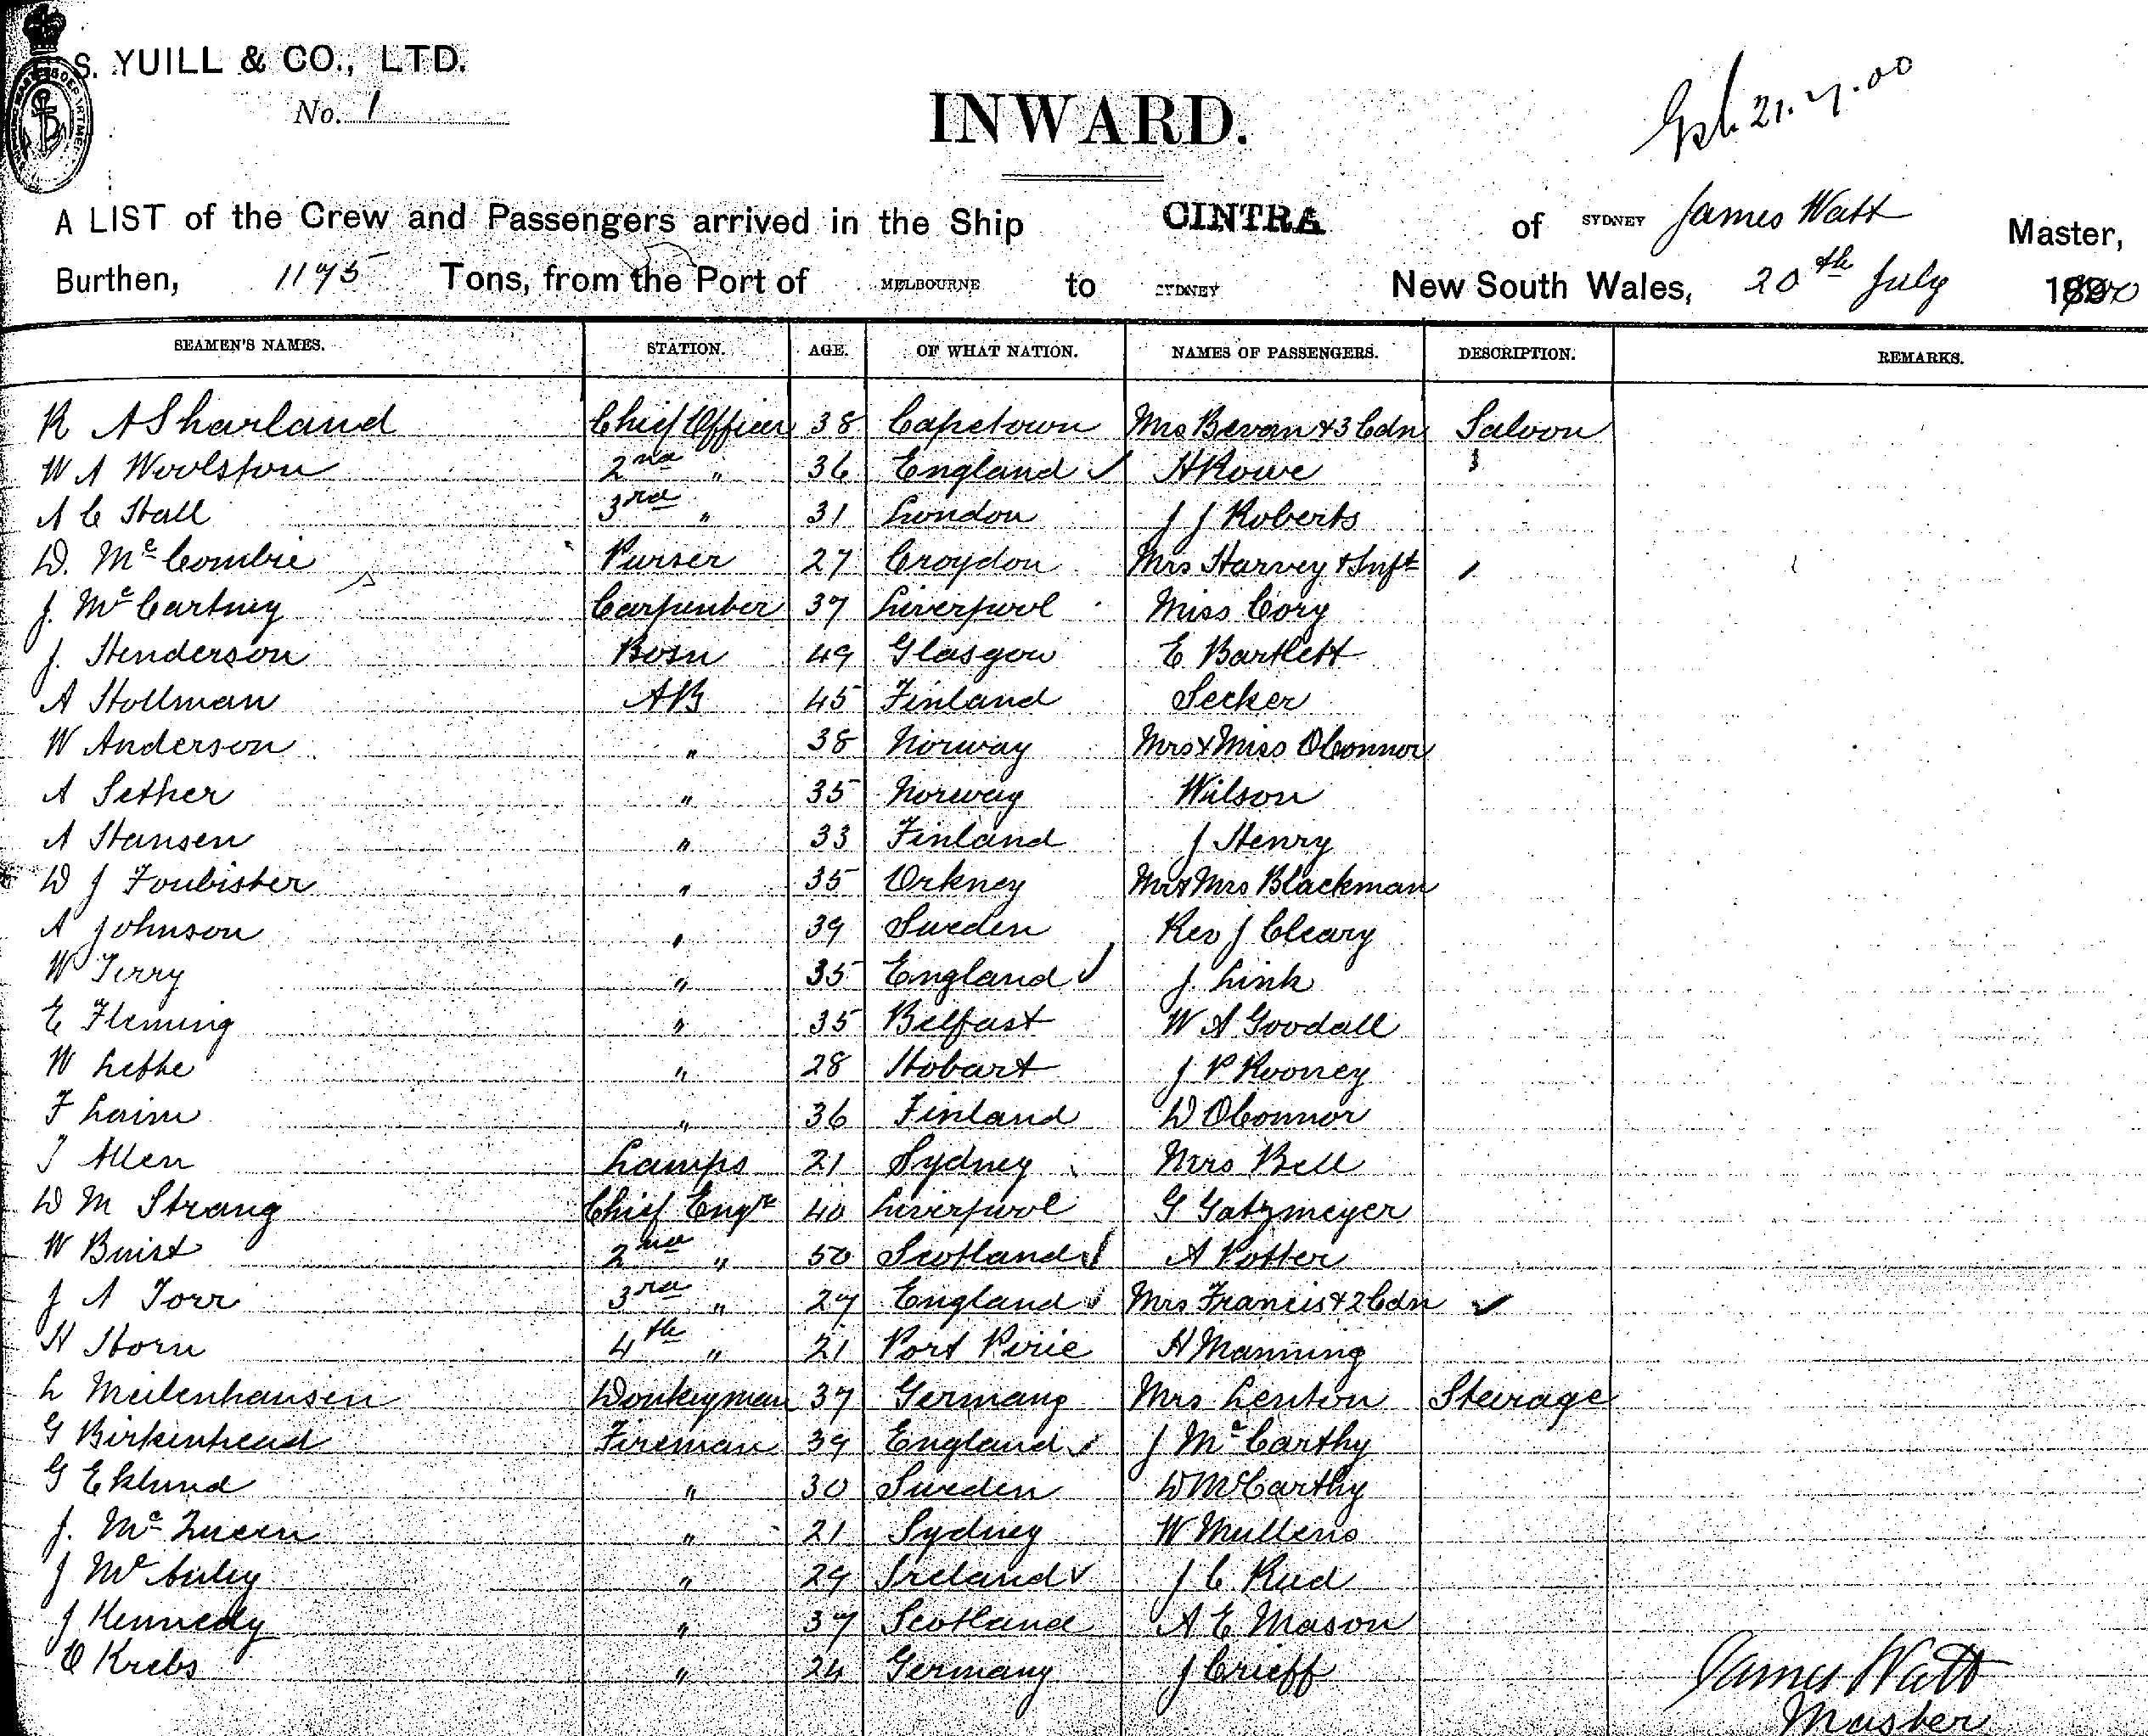 S. YUILL & CO., LTD.
No. 1
INWARD.
21.7.00
A LIST of the Crew and Passengers arrived in the Ship CINTRA of SYDNEY James Watt Master,
Burthen, 1175 Tons, from the Port of MELBOURNE to SYDNEY New South Wales, 20th July 1900
SEAMEN'S NAMES. STATION. AGE. OF WHAT NATION. NAMES OF PASSENGERS. DESCRIPTION. REMARKS.
R A Sharland Chief Officer 38 Capetown Mrs Bevan & 3 Cdn Saloon
W A Woolston 2nd " 36 England ✓ H Rowe
A C Hall 3rd " 31 London J J Roberts
D. McCombie Purser 27 Croydon Mrs Harvey & Inft
J. McCartney Carpenter 37 Liverpool Miss Cory
J. Henderson Bosn 49 Glasgow E Bartlett
A Hollman AB 45 Finland Secker
W Anderson " 38 Norway Mrs & Miss OConnor
A Sether " 35 Norway Wilson
A Hansen " 33 Finland J Henry
D J Foubister " 35 Orkney Mr & Mrs Blackman
A Johnson " 39 Sweden Rev J Cleary
W Terry " 35 England ✓ J. Link
E Fleming " 35 Belfast W A Goodall
W " 28 Hobart J P Rooney
F " 36 Finland D OConnor
T Allen Lamps 21 Sydney Mrs Bell
D M Strang Chief Engr 40 Liverpool G Gatzmeyer
W Buist 2nd " 50 Scotland ✓ A Potter
J A Torr 3rd " 27 England ✓ Mrs Francis & 2 Cdn ✓
H Horn 4th " 21 Port Pirie H Manning
L Meilenhausen Donkeyman 37 Germany Mrs Lenton Steerage
G Birkenhead Fireman 39 England ✓ J McCarthy
G Eklund " 30 Sweden D McCarthy
J. McQueen " 21 Sydney W Mullens
J McAuley " 29 Ireland ✓ J C Rud
J Kennedy " 37 Scotland A E Mason
C Krebs " 24 Germany J Crieff
James Watt
Master